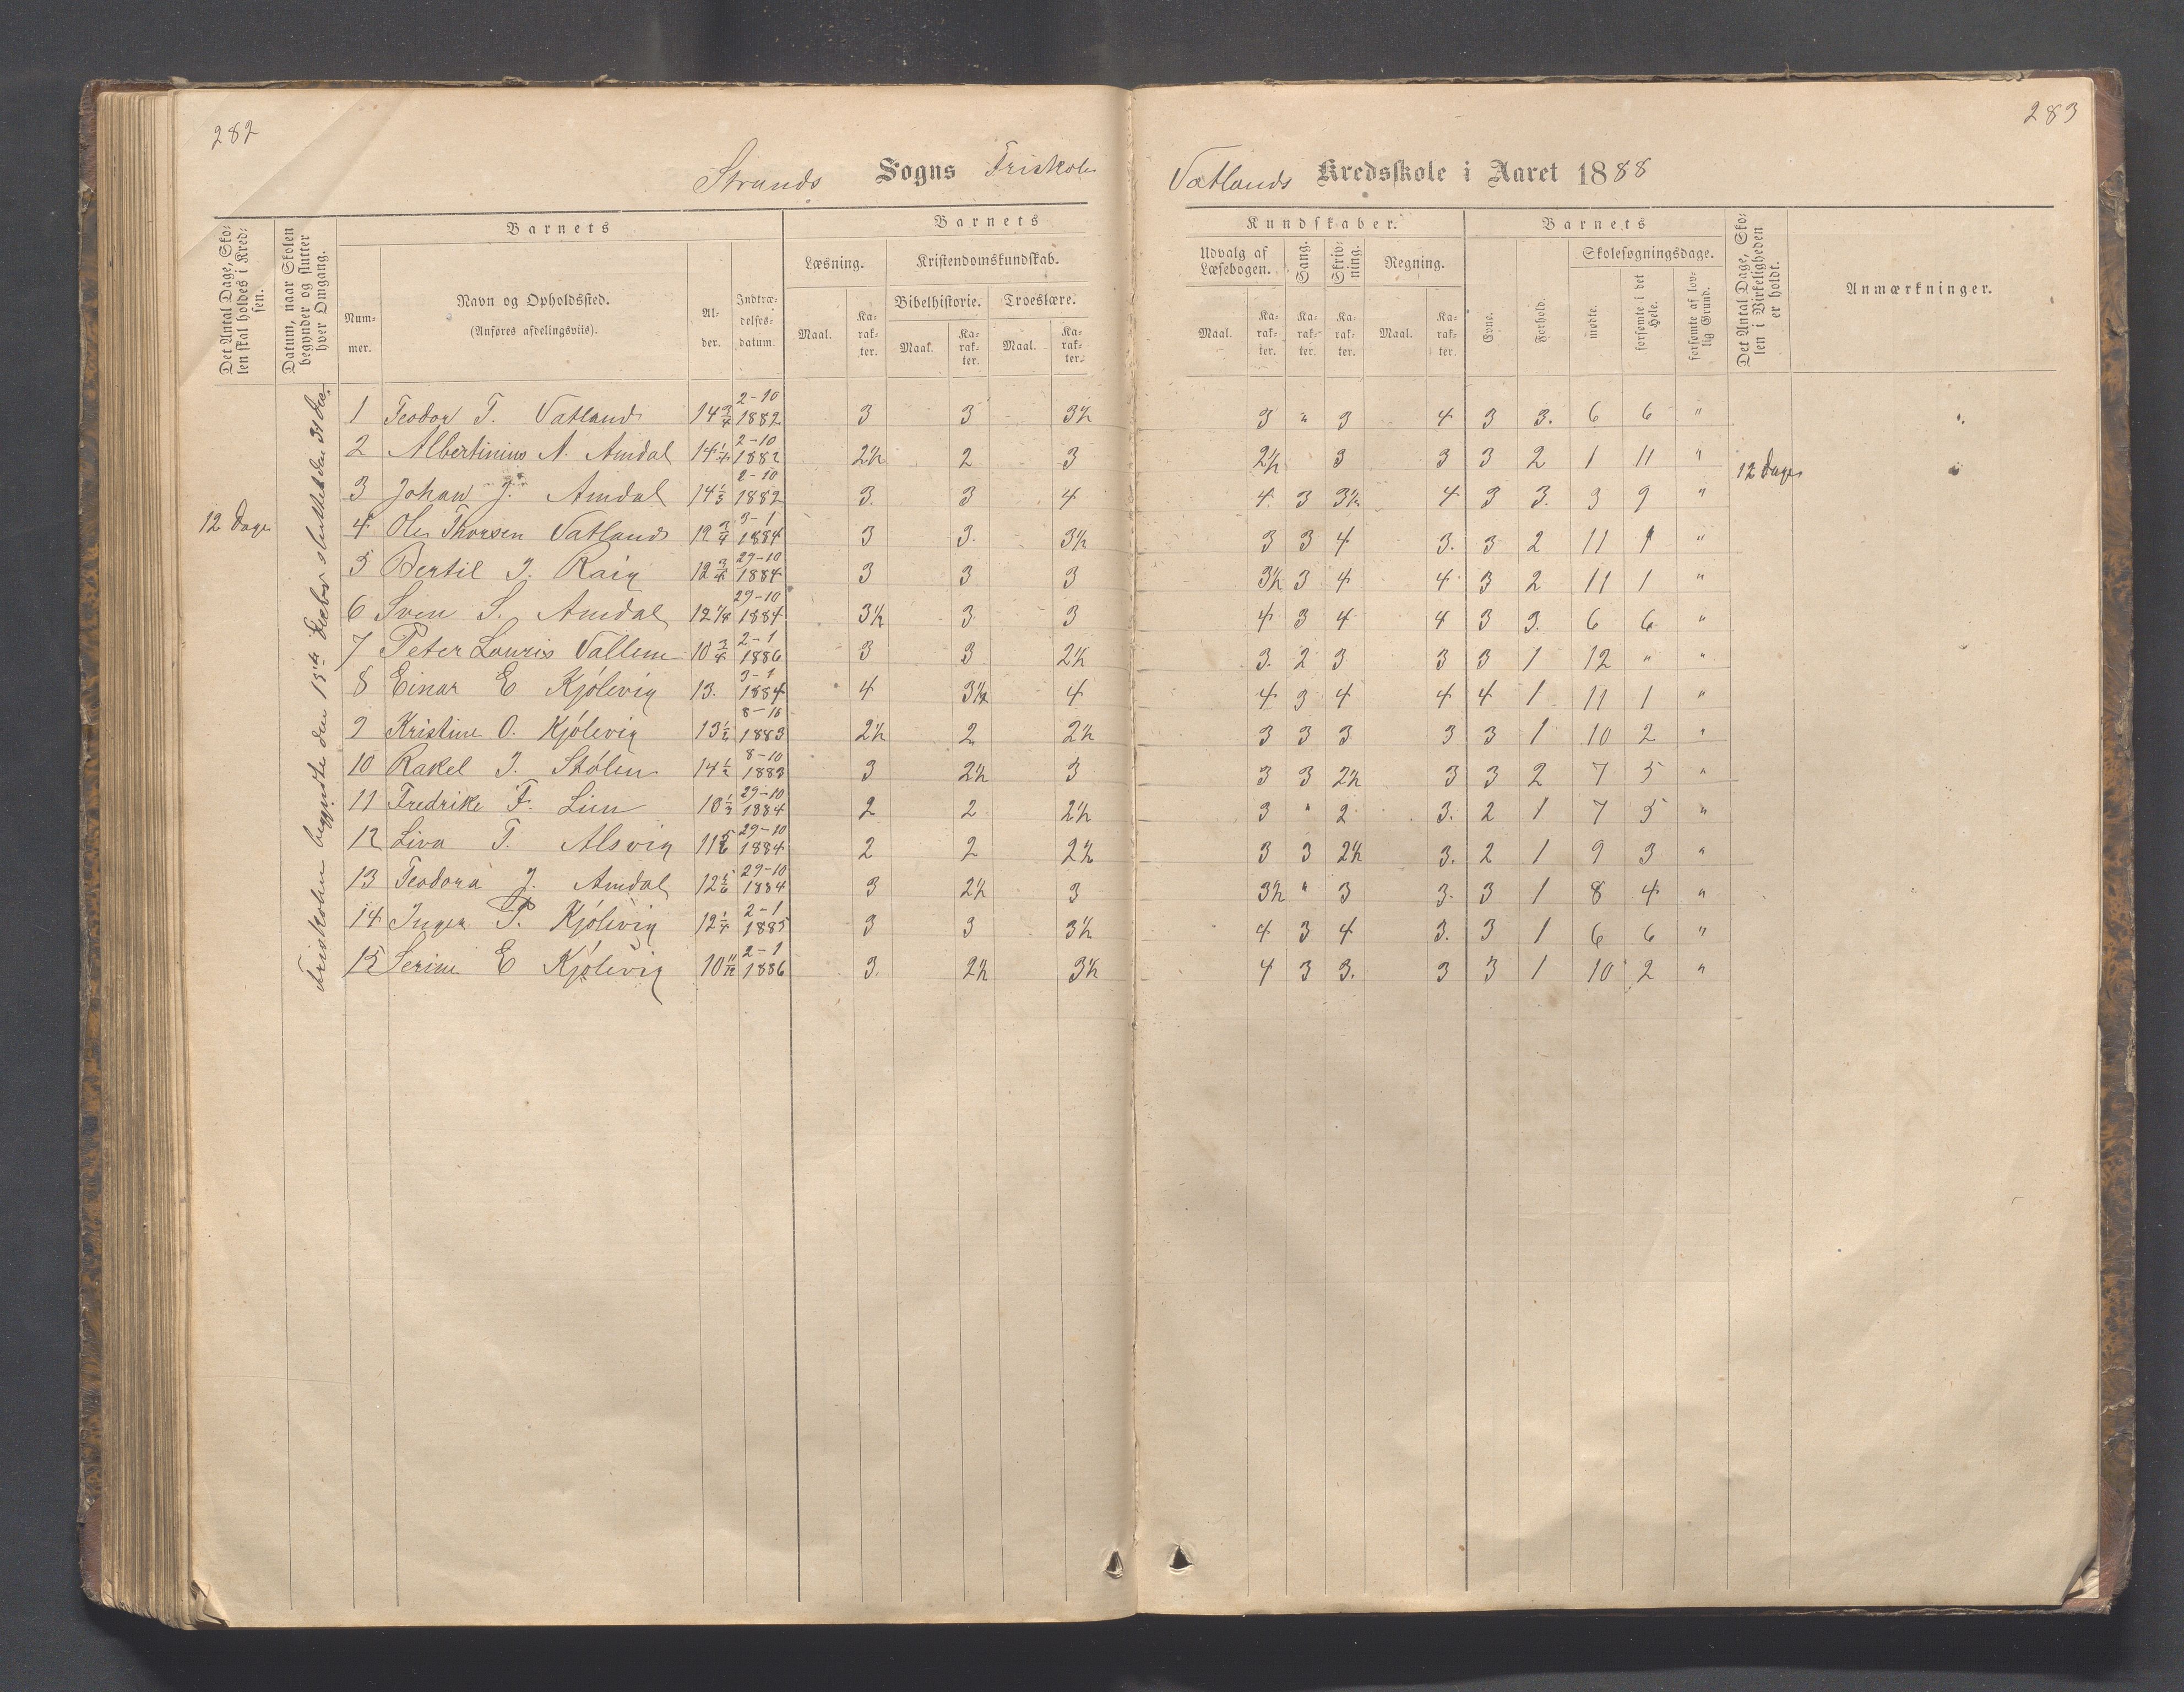 282
283
Strands Sogns Friskole
Vatlands Kredsskole i Aaret 1888
Det Antal Dage, Skolen skal holdes i Kredsen.
Datum, naar Skolen begynder og slutter hver Omgang.
Barnets
Nummer.
Navn og Opholdssted.
(Anføres afdelingsviis).
Alder.
Indtrædelsesdatum.
Barnets
Læsning.
Kristendomskundskab.
Bibelhistorie.
Troeslære.
Maal.
Karakter.
Maal.
Karakter.
Maal.
Karakter.
Kundskaber.
Udvalg af Læsebogen.
Sang.
Skrivning.
Regning.
Maal.
Karakter.
Karakter.
Karakter.
Maal.
Karakter.
Barnets
Evne.
Forhold.
Skolesøgningsdage.
mødte.
forsømte i det Hele.
forsømte af lovlig Grund.
Det Antal Dage, Skolen i Virkeligheden er holdt.
Anmærkninger.
12 Dage
Friskolen begyndte den 15de Decbr sluttet den 31 Dec.
1 Teodor T. Vatland 14 3/4 2-10 1882 3 3 3½ 3 " 3 4 3 3. 6 6 "
2 Albertinius A. Amdal 14 1/4 2-10 1882 2½ 2 3 2½ 3 3 3 2 1 11 "
12 Dage
3 Johan J. Amdal 14 1/3 2-10 1882 3. 3 4 4 3 3½ 4 3 3. 3 9 "
4 Ole Thorsen Vatland 12 3/4 3-1 1884 3 3. 3½ 3 3 4 3. 3 2 11 1 "
5 Bertil J. Raig 12 3/4 29-10 1884 3 3 3 3½ 3 4 4 3 2 11 1 "
6 Sven S. Amdal 12 1/8 29-10 1884 3½ 3 3 4 3 4 4 3 3. 6 6 "
7 Peter Lauris Vallem 10 3/4 2-1 1886 3 3 2½ 3. 2 3 3 3 1 12 " "
8 Einar E Kjölevig 13. 3-1 1884 4 3½ 4 4 3 4 4 4 1 11 1 "
9 Kristine O. Kjölevig 13 1/2 8-10 1883 2½ 2 2½ 3 3 3 3 3 1 10 2 "
10 Rakel J. Stölen 14 1/2 8-10 1883 3 2½ 3 3 3 2½ 3 3 2 7 5 "
11 Fredrike F. Lien 13 1/3 29-10 1884 2 2 2½ 3 " 2 3. 2 1 7 5 "
12 Liva T. Alsvig 11 5/6 29-10 1884 2 2 2½ 3 3 2½ 3. 2 1 9 3 "
13 Teodora J. Amdal 12 5/6 29-10 1884 3 2½ 3 3½ " 3 3. 3 1 8 4 "
14 Inger P. Kjölevig 12 1/4 2-1 1885 3 3 3½ 4 3 4 3. 3 1 6 6 "
15 Serine E Kjölevig 10 11/12 2-1 1886 3. 2½ 3½ 4 3 3. 3 3 1 10 2 "